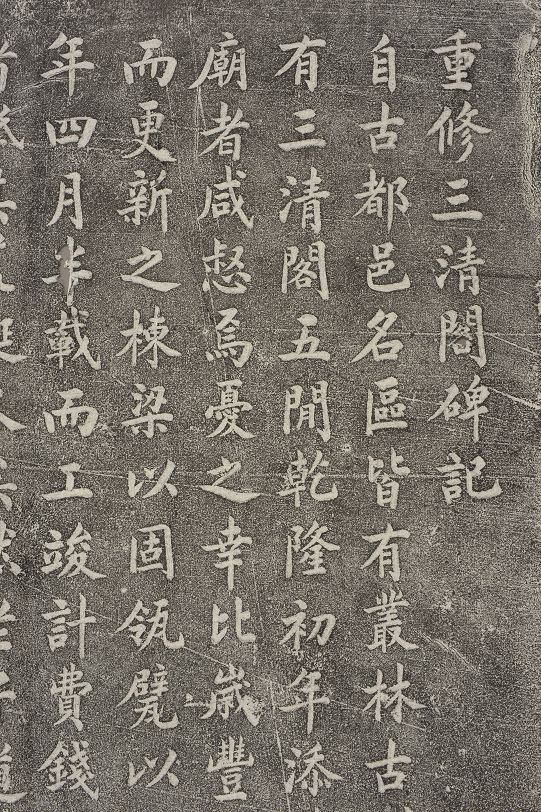 重修三清閣碑記
自古都邑名區皆有叢林古
有三清閣五間乾隆初年添
廟者咸惄焉憂之幸比歲豐
而更新之棟梁以固瓴甓以
年四月半載而工竣計費錢